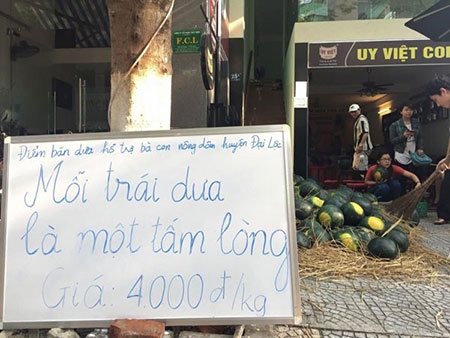 F.C.L
UY VIỆT CO
Điểm bán dưa hỗ trợ bà con nông dân huyện Đại Lộc
Mỗi trái dưa
là một tấm lòng
Giá: 4.000 đ/kg